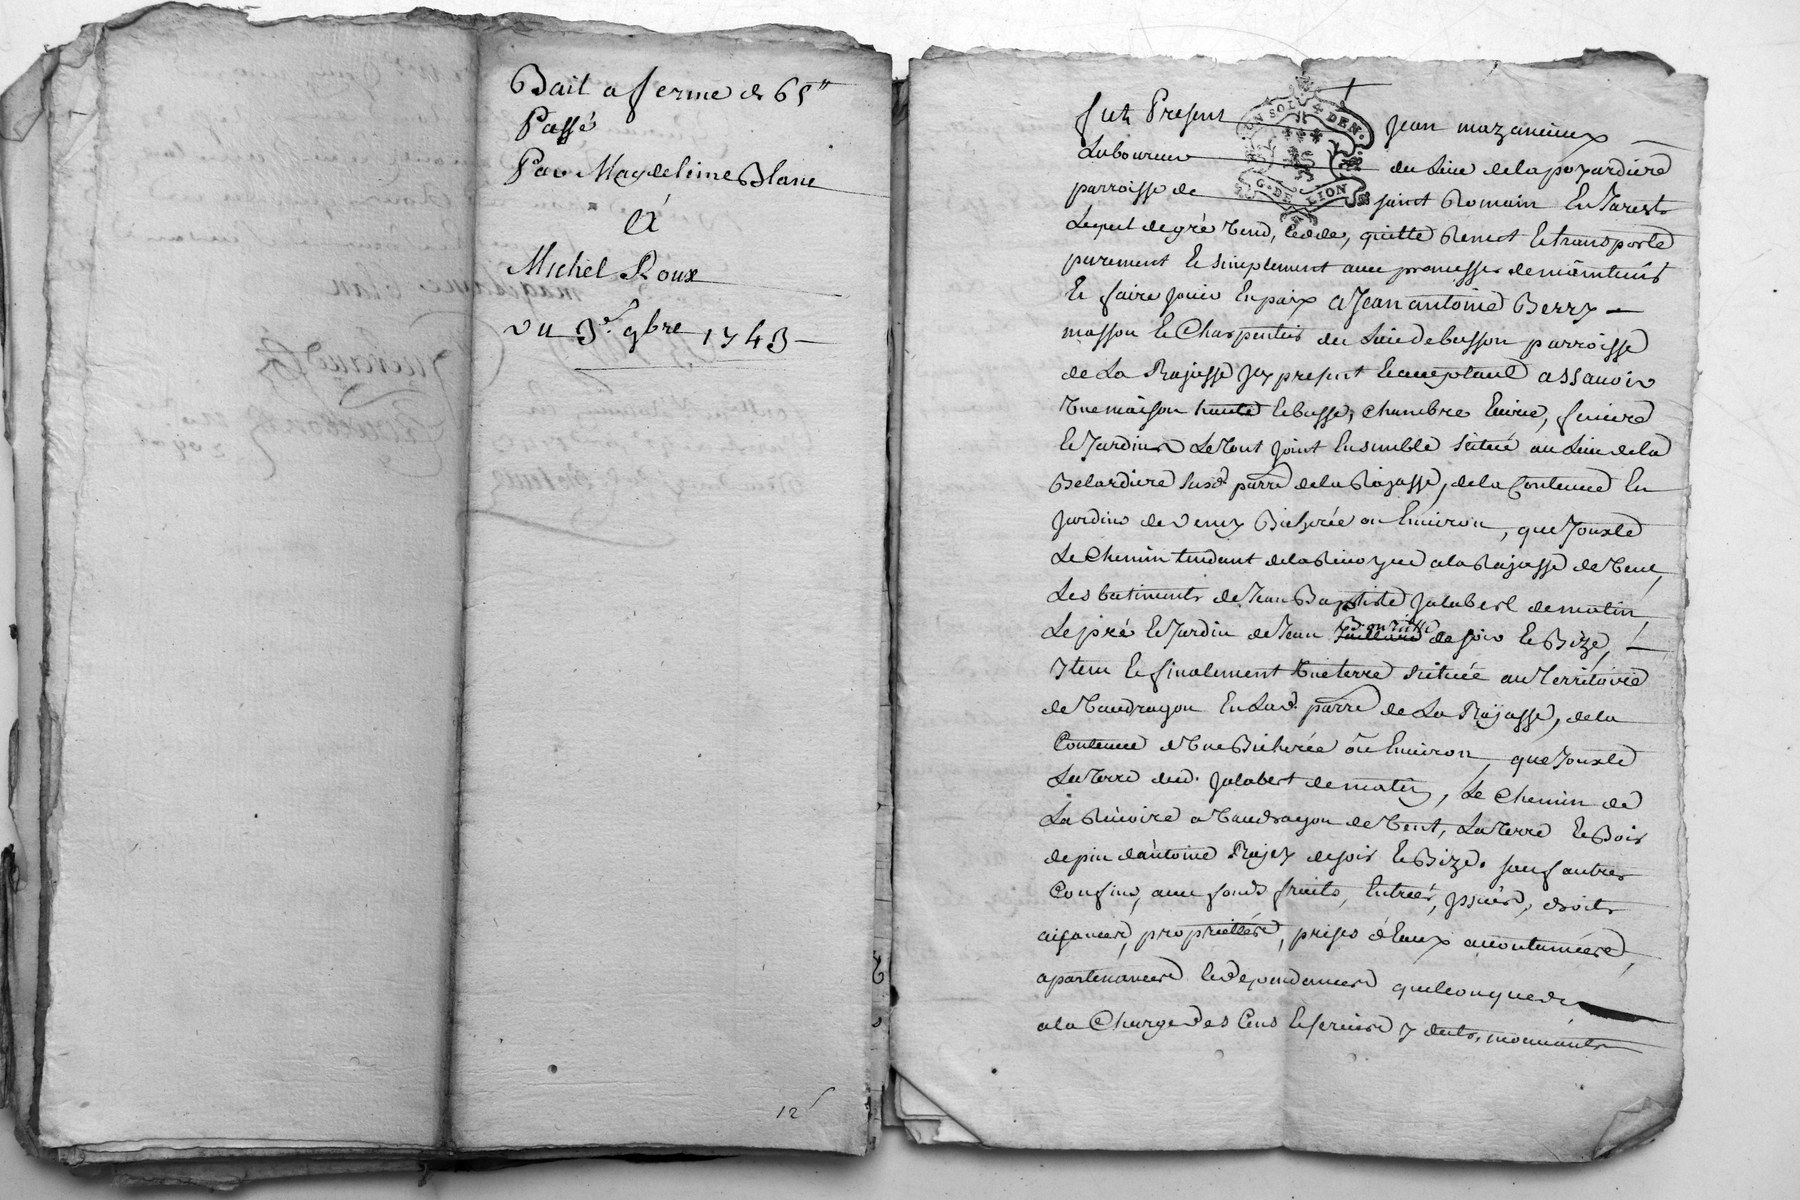 Bail a ferme de 65ᵗᵗ
Passé
Par Magdeleine Blanc
A
Michel Roux
Du 3ᵉ 9bre 1743
12ˢ
UN SOL 4 DEN.
G. DE LION
fut Present Jean mazancieux
Laboureur du Lieu de la poyardiere
parroisse de saint Romain En Jarest
Lequel de gré Vend, Cedde, quitte Remet Et transporte
purement Et simplement avec promesses de maintenir
Et faire jouir En paix a Jean antoine Berry
masson Et Charpentier du Lieu de busson parroisse
de La Rajasse Jcy present Et acceptant assavoir
Une maison haute Et basse, chambre Ecurie, feniere
Et Jardin Le tout joint Ensemble scitué au Lieu de la
Belardiere susd. parre de la Rajasse, de la Contenue En
Jardin de deux Bicherée ou Environ, que Jouxte
Le Chemin tendant de la a la Rajasse de Vent,
Les batiments de Jean Baptiste Jalabert de matin,
Le pré Et Jardin de Jean de soir Et Bize,
Item Et finalement Une terre scituée au Territoire
de Vaudragon En Lad. parre de La Rajasse, de la
Contenue d'Une Bicherée ou Environ que Jouxte
La Terre dud. Jalabert de matin, Le Chemin de
La a Vaudragon de Vent, La Terre Et Bois
de pin d'antoine de soir Et Bize. sauf autres
Confins, avec fonds fruits, Entrées, jssues, droits
aisances, proprietées, prises d'Eaux accoutumées,
apartenances Et dependances quelconques
a la Charge des Cens Et servis y deubs, mouvants